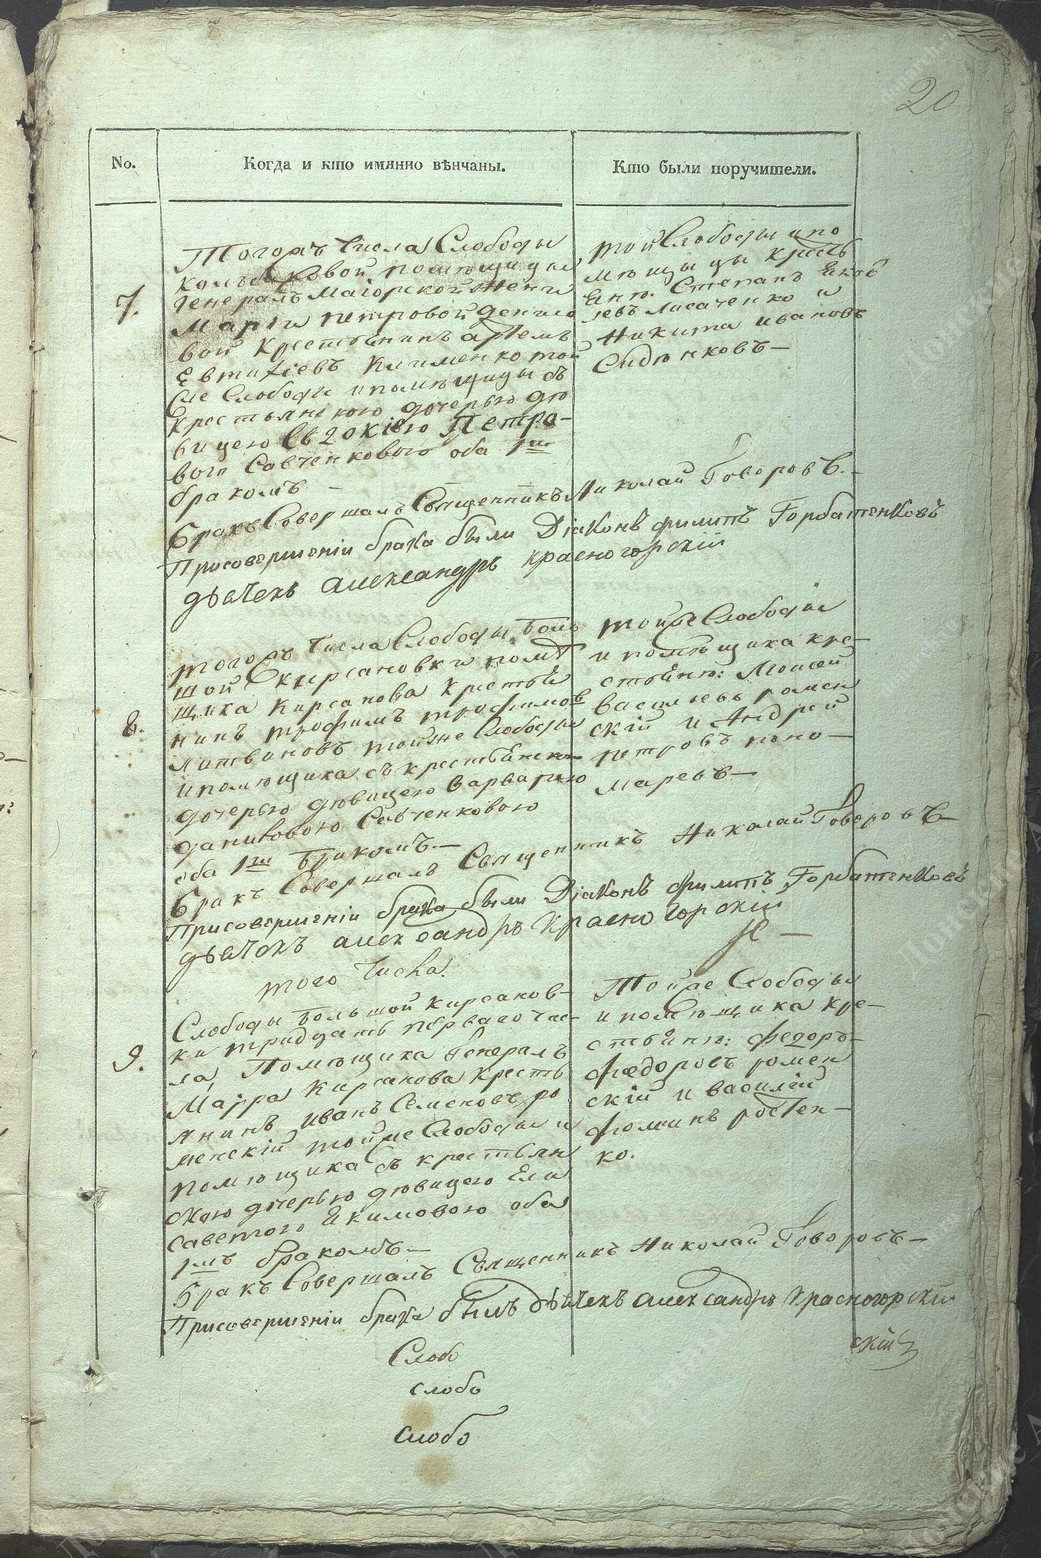 20
No.
Когда и кто имянно вѣнчаны.
Кто были поручители.
7.
Тогожъ Числа Слободы
помѣщицы
Генералъ Маіорской жены
Маріи Петровой Денисо
вой крестьянинъ Артемъ
Евтихіевъ Клименко той
Же Слободы и помѣщицы съ
крестьянскою дочерью дѣ
вицею Евдокіею Петро-
вою Савченковою оба 1мъ
бракомъ
той Слободы и по
мѣщицы кресть
яне Степанъ Яков
левъ Лисаченко и
Никита Ивановъ
Сидѣнковъ—
Бракъ Совершалъ Священникъ Николай Говоровъ.
Присовершеніи брака были Діаконъ Филипъ Горбатенковъ
дьячекъ Александръ Красногорскій
8.
тогожъ Числа Слободы Боль
шой Кирсановки помѣ
щика Кирсанова крестья
нинъ Трофимъ Трофимовъ
Литвиновъ тойже Слободы
и помѣщика съ крестьянскою
дочерью дѣвицею Варварою
Даниловою Савченковою
оба 1мъ Бракомъ—
тойже Слободы
и помѣщика кре-
стьяне: Моисей
Васильевъ Ромен
скій и Андрей
Петровъ Поно-
маревъ—
Бракъ Совершалъ Священникъ Николай Говоровъ—
Присовершеніи брака были Діаконъ Филипъ Горбатенковъ
дьячекъ Александръ Красногорскій
того Числа
9.
Слободы Большой Кирсанов-
ки тридцать перваго чис-
ла, Помѣщика Генералъ
Маіора Кирсанова кресть
янинъ Иванъ Семеновъ Ро
менскій тойже Слободы и
помѣщика съ крестьян
скою дочерью дѣвицею Ели
саветою Екимовою оба
1мъ бракомъ—
Тойже Слободы
и помѣщика кре-
стьяне: Федоръ
Федоровъ Ромен
скій и Василей
Фоминъ Костен-
ко.
Бракъ Совершалъ Священникъ Николай Говоровъ—
Присовершеніи брака былъ дьячекъ Александръ Красногорскій
скій
Слобо
слобо
слобо